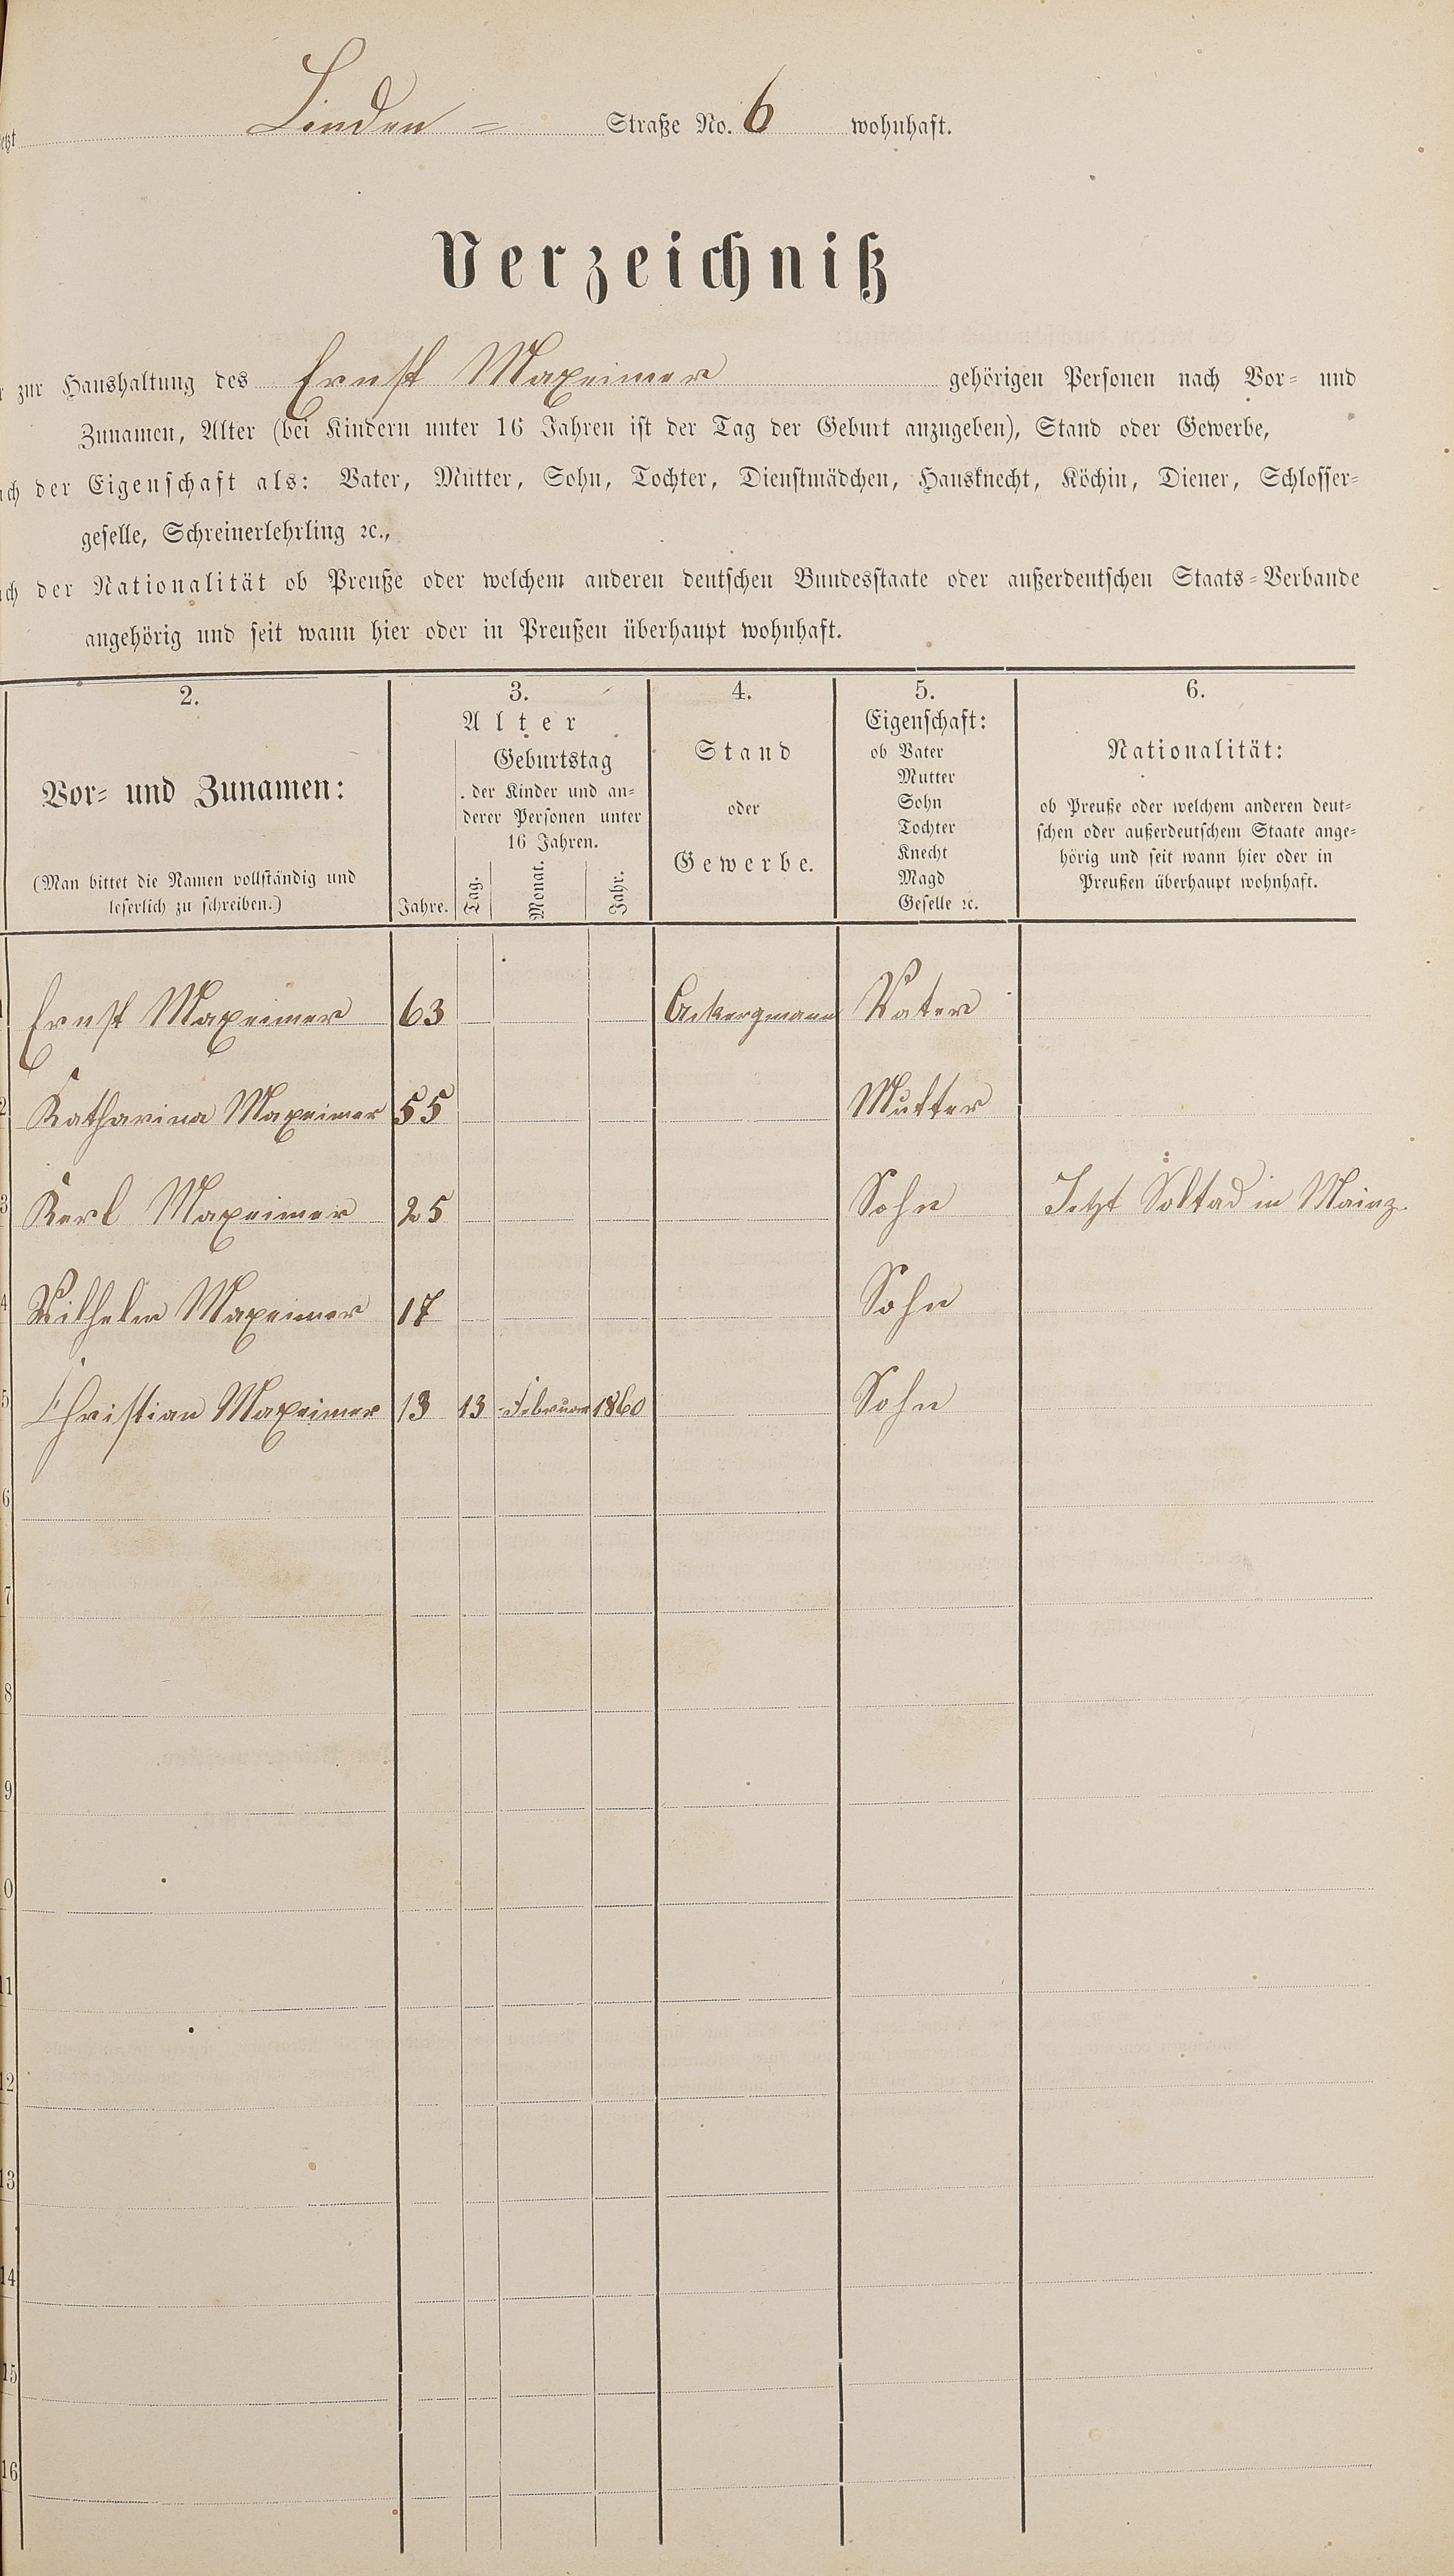 Linden = Straße No. 6 wohnhaft.
Verzeichniß
zur Haushaltung des Ernst Maxeimer gehörigen Personen nach Vor= und
Zunamen, Alter (bei Kindern unter 16 Jahren ist der Tag der Geburt anzugeben), Stand oder Gewerbe,
der Eigenschaft als: Vater, Mutter, Sohn, Tochter, Dienstmädchen, Hausknecht, Köchin, Diener, Schlosser=
geselle, Schreinerlehrling ꝛc.,
der Nationalität ob Preuße oder welchem anderen deutschen Bundesstaate oder außerdeutschen Staats=Verbande
angehörig und seit wann hier oder in Preußen überhaupt wohnhaft.
2. 3. 4. 5. 6.
Vor= und Zunamen:
(Man bittet die Namen vollständig und
leserlich zu schreiben.)
Alter
Jahre.
Geburtstag
der Kinder und an=
derer Personen unter
16 Jahren.
Tag. Monat. Jahr.
Stand
oder
Gewerbe.
Eigenschaft:
ob Vater
Mutter
Sohn
Tochter
Knecht
Magd
Geselle ꝛc.
Nationalität:
ob Preuße oder welchem anderen deut=
schen oder außerdeutschem Staate ange=
hörig und seit wann hier oder in
Preußen überhaupt wohnhaft.
Ernst Maxeimer 63 Ackergmann Vater
2 Katharina Maxeimer 55 Mutter
3 Karl Maxeimer 25 Sohn Jetzt Soltad in Mainz.
4 Wilhelm Maxeimer 17 Sohn
5 Christian Maxeimer 13 13 Februar 1860 Sohn
6
7
8
9
0
11
12
13
14
15
16